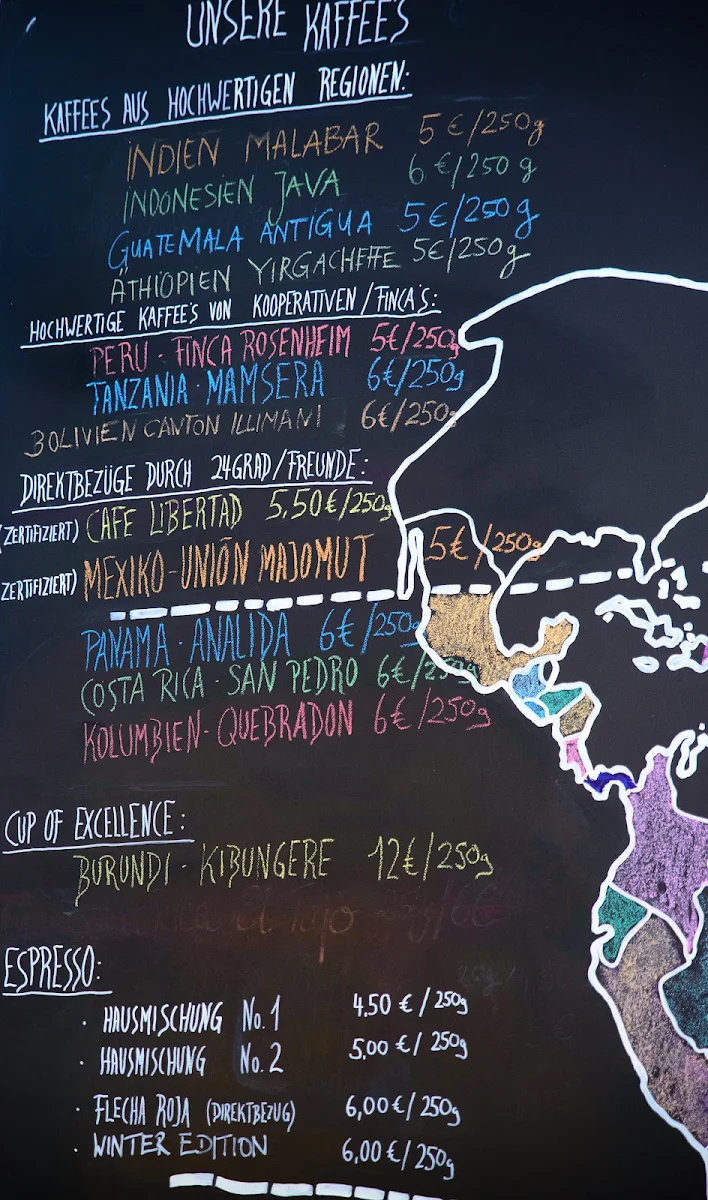 UNSERE KAFFEE'S
KAFFEES AUS HOCHWERTIGEN REGIONEN:
INDIEN MALABAR 5€/250g
INDONESIEN JAVA 6€/250g
GUATEMALA ANTIGUA 5€/250g
ÄTHIOPIEN YIRGACHEFFE 5€/250g
HOCHWERTIGE KAFFEE'S VON KOOPERATIVEN/FINCA'S:
PERU - FINCA ROSENHEIM 5€/250g
TANZANIA - MAMSERA 6€/250g
BOLIVIEN CANTON ILLIMANI 6€/250g
DIREKTBEZÜGE DURCH 24GRAD/FREUNDE:
(ZERTIFIZIERT) CAFE LIBERTAD 5,50€/250g
ZERTIFIZIERT) MEXIKO-UNIÓN MAJOMUT 5€/250g
PANAMA - ANALIDA 6€/250g
COSTA RICA - SAN PEDRO 6€/250g
KOLUMBIEN - QUEBRADON 6€/250g
CUP OF EXCELLENCE:
BURUNDI - KIBUNGERE 12€/250g
ESPRESSO:
· HAUSMISCHUNG No.1 4,50 €/250g
· HAUSMISCHUNG No.2 5,00 €/250g
· FLECHA ROJA (DIREKTBEZUG) 6,00€/250g
· WINTER EDITION 6,00€/250g